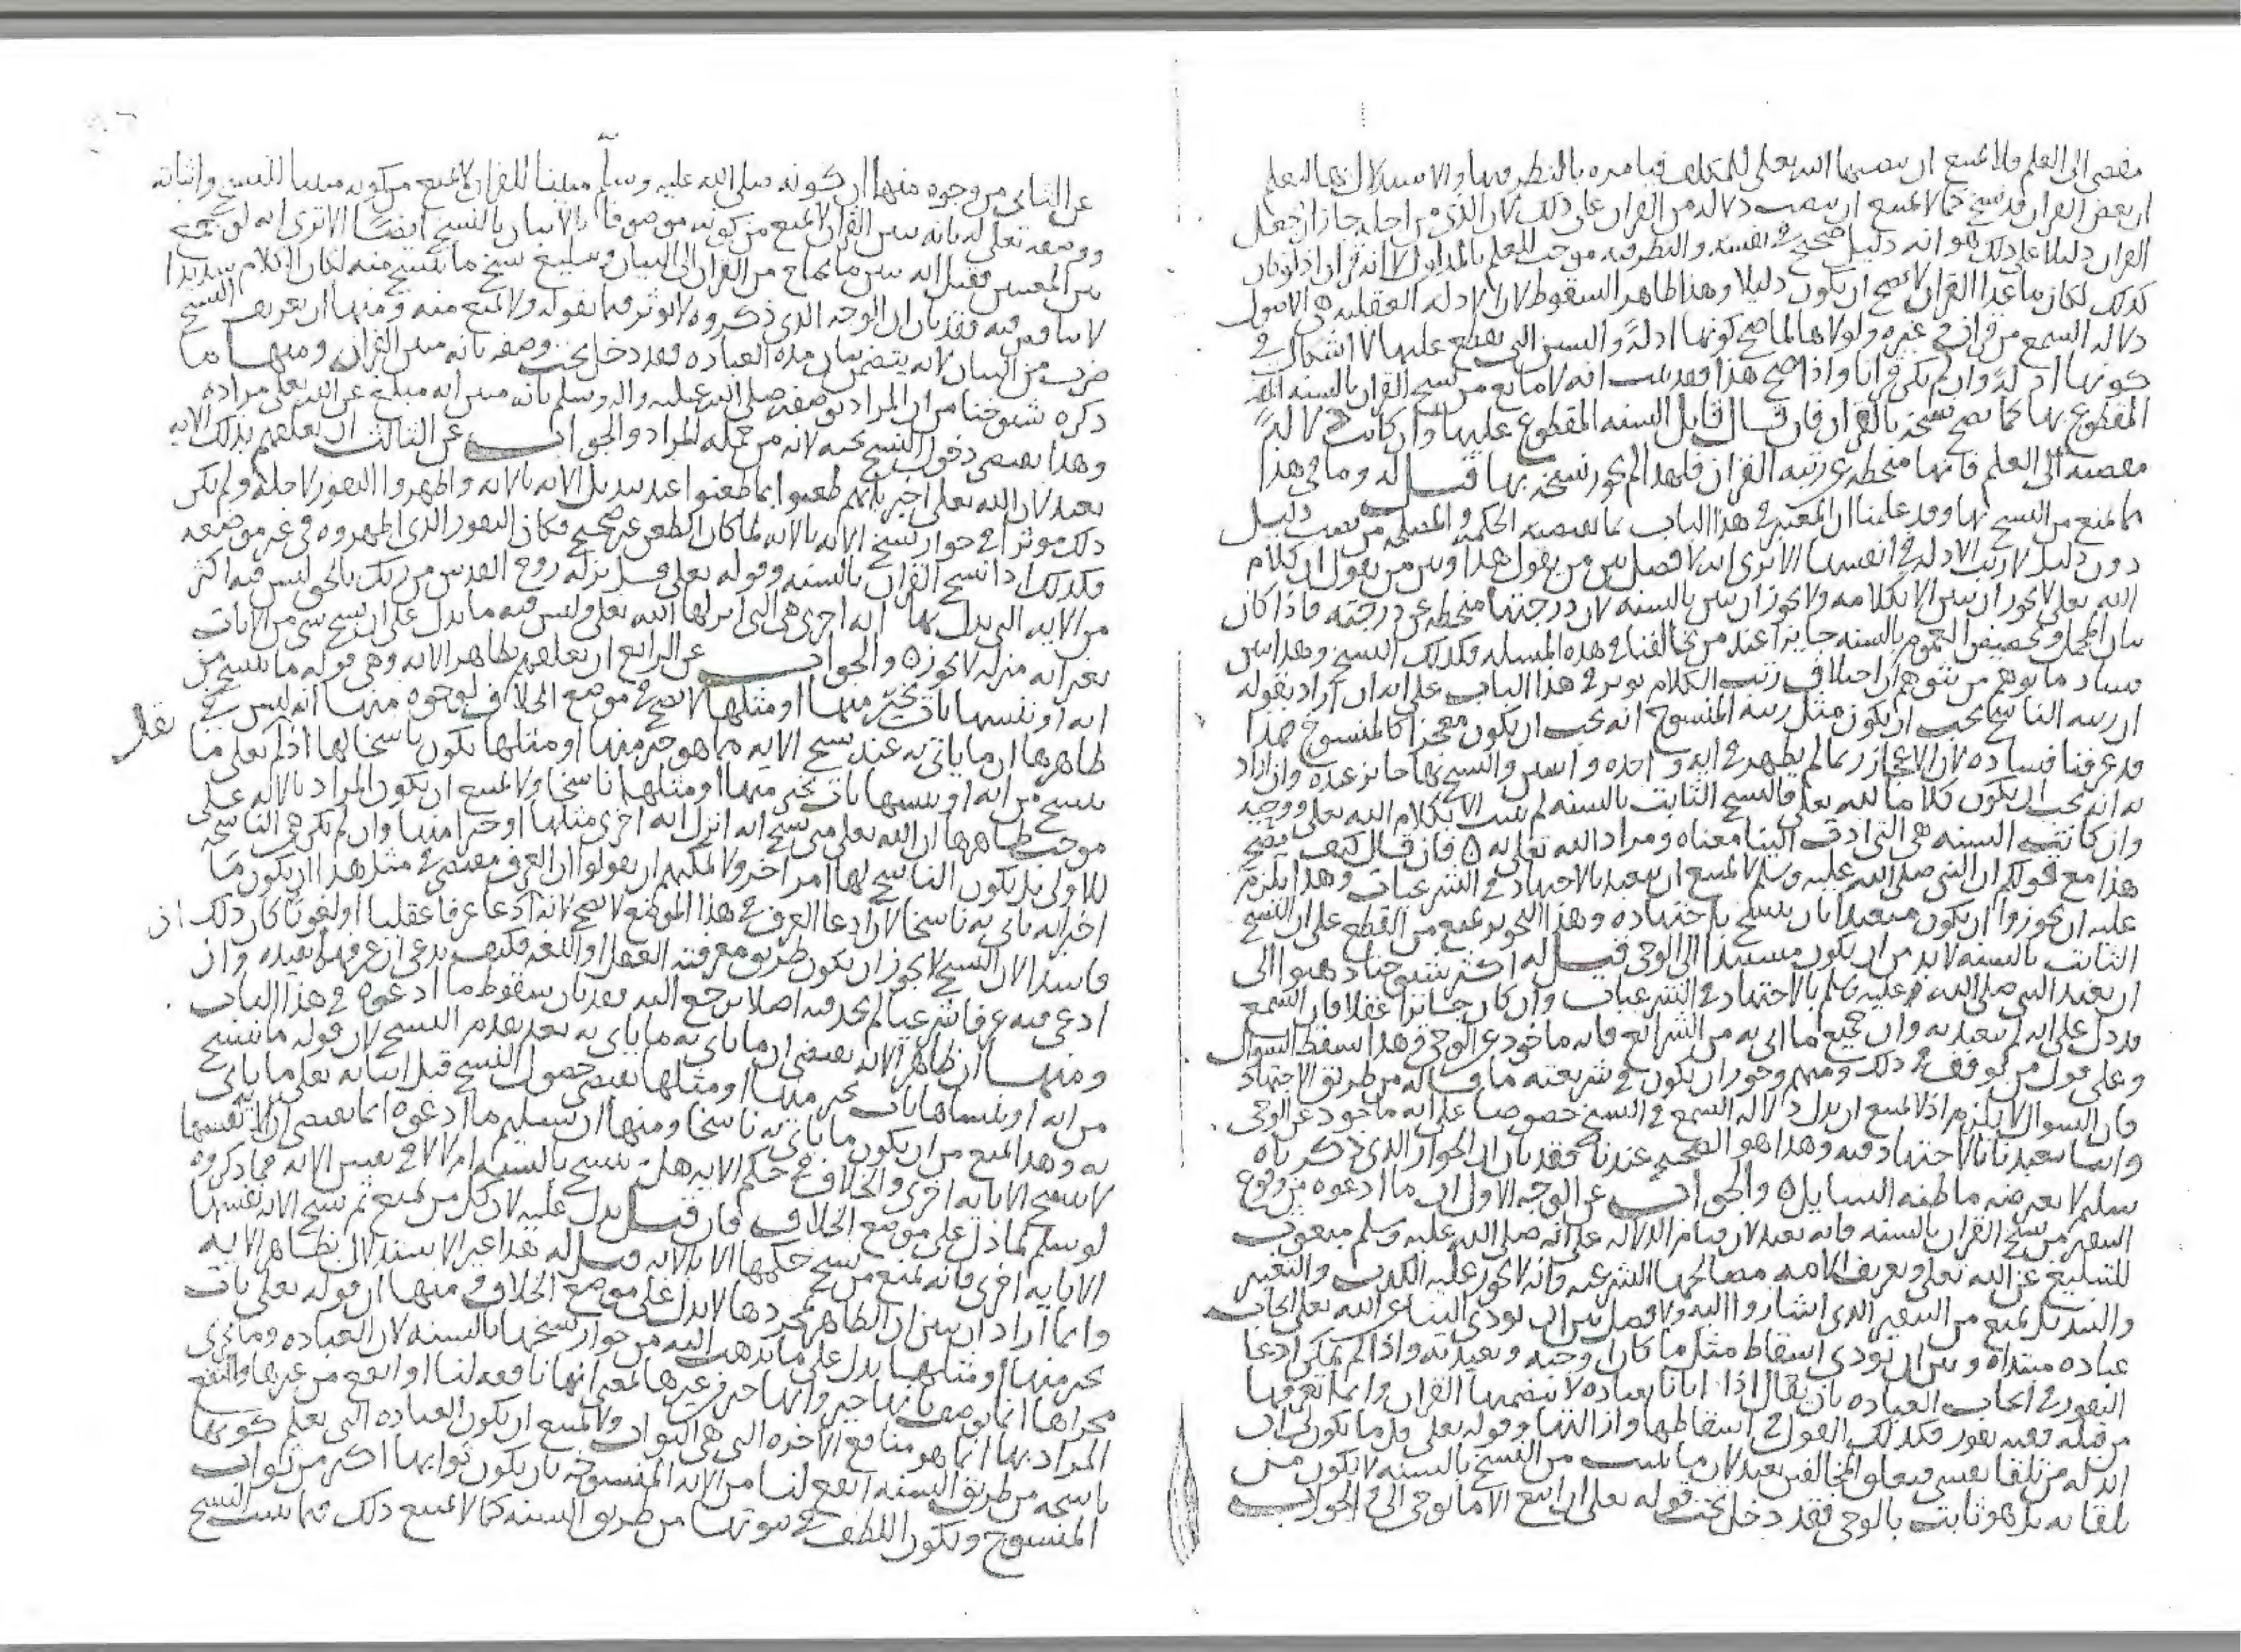 مفضى الى العلم ولا يمتنع ان ينصبها الله تعالى للمكلف فيامره بالنظر فيها والاستدلال بها ليعلم
ان بعض القران قد نسخ كما لا يمتنع ان ينصب دلاله من القران على ذلك لان الذى من اجله جاز ان يجعل
القران دليلا على ذلك هو انه دليل صحيح فى نفسه والنظر فيه موجب للعلم بالمدلول لا انه قران اذ لو كان
كذلك لكان ما عدا القران لا يصح ان يكون دليلا وهذا ظاهر السقوط لان الادله العقليه هى الاصول
دلاله السمع من قران وغيره ولولاها لما صح كونها ادلة والسنن التى يقطع عليها لا اشكال فى
كونها ادلة وان لم يكن قرانا واذا صح هذا فقد ثبت انه لا مانع من نسخ القران بالسنه
المقطوع بها كما يصح نسخه بالقران فان قال قايل السنه المقطوع عليها وان كانت دلالة
مفضيه الى العلم فانها منحطه عن رتبه القران فلهذا لم يجوز نسخه بها قيل له وما فى هذا
مما يمنع من النسخ بها وقد علمنا ان المعتبر فى هذا الباب بما تقتضيه الحكمه والمصلحه من نصب دليل
دون دليل لا رتب الادله فى انفسها الا ترى انه لا فصل بين من يقول هذا وبين من يقول ان كلام
الله تعالى لا يجوز ان يبين الا بكلامه ولا يجوز ان يبين بالسنه لان درجتها منحطه عن درجته فاذا كان
بيان المجمل وتخصيص العموم بالسنه جايزا عند من يخالفنا فى هذه المسله فكذلك النسخ وهذا يبين
فساد ما يوهم من يتوهم ان اختلاف رتب الكلام يوثر فى هذا الباب على انه ان اراد بقوله
ان رتبه الناسخ يجب ان يكون مثل رتبه المنسوخ انه يجب ان يكون معجزا كالمنسوخ فهذا
قد عرفنا فساده لان الاعجاز ربما لم يظهر فى ايه واحده وايتين والنسخ بها جايز عنده وان اراد
به انه يجب ان يكون كلاما لله تعالى فالنسخ الثابت بالسنه لم يثبت الا بكلام الله تعالى ووحيه
وان كانت السنه هى التى ادت الينا معناه ومراد الله تعالى به ه فان قال كيف يصح
هذا مع قولكم ان النبى صلى الله عليه وسلم لا يمتنع ان يتعبد بالاجتهاد فى الشرعيات وهذا يلزم
عليه ان تجوزوا ان يكون متعبدا بان ينسخ باجتهاده وهذا التجويز يمنع من القطع على ان النسخ
الثابت بالسنه لا بد من ان يكون مستندا الى الوحى قيل له اكثر شيوخنا ذهبوا الى
ان تعبد النبى صلى الله عليه وسلم بالاجتهاد فى الشرعيات وان كان جايزا عقلا فان السمع
قد دل على انه لم يتعبد به وان جميع ما اتى به من الشرائع فانه ماخوذ عن الوحى فى هذا سقط السوال
وعلى قول من توقف فى ذلك ومنهم وجوز ان يكون فى شريعته ما قاله من طريق الاجتهاد
فان السوال لا يلزم اذ لا يمتنع ان يدل دلاله السمع فى النسخ خصوصا على انه ماخوذ عن الوحى
وانما تعبدنا بالاجتهاد فيه وهذا هو الصحيح عندنا فقد بان ان الجواز الذى ذكرناه
سليم لا يعترضه ما ظنه السايل ه والجواب عن الوجه الاول ان ما ادعوه من وقوع
التنفير من نسخ القران بالسنه فانه بعيد لان قيام الدلاله على انه صلى الله عليه وسلم مبعوث
للتبليغ عن الله تعالى وتعريف الامه مصالحها الشرعيه وانه لا يجوز عليه الكذب والتغيير
والتبديل يمنع من التنفير الذى اشاروا اليه ولا فصل بين ان يودى الينا عن الله تعالى ايجاب
عباده مبتداه وبين ان يودى اسقاط مثل ما كان اوجبه وتعبد به واذا لم يمكن ادعا
النفور فى ايجاب العباده بان يقال اذا اتانا بعباده لا يتضمنها القران وانما نعرفها
من قبله ففيه نفور فكذلك القول فى اسقاطها وازالتها وقوله تعالى قل ما يكون لى ان
ابدله من تلقا نفسى فتعلق المخالفين بعيد لان ما يثبت من النسخ بالسنه لا يكون من
تلقايه بل هو ثابت بالوحى فقد دخل تحت قوله تعالى ان اتبع الا ما يوحى الى والجواب
عن الثانى من وجوه منها ان كونه صلى الله عليه وسلم مبينا للقران لا يمنع من كونه مبينا للنسخ واثباته
ووصفه تعالى له بانه يبين القران لا يمنع من كونه موصوفا بالاتيان بالنسخ ايضا الا ترى انه لو جمع
بين المعنيين فقيل انه يبين ما يحتاج من القران الى البيان ويبلغ نسخ ما ينسخ منه لكان الكلام سديدا
لا تنافى فيه فقد بان ان الوجه الذى ذكروه لا يوثر فيما نقوله ولا يمنع منه ومنها ان تعريف النسخ
ضرب من البيان لانه يتضمن بيان مده العباده فقد دخل تحت وصفه بانه مبين القران ومنها ما
ذكره شيوخنا من ان المراد بوصفه صلى الله عليه واله وسلم بانه مبين انه مبلغ عن الله تعالى مراده
وهذا يقتضى دخول النسخ تحته لانه من جمله المراد والجواب عن الثالث ان تعلقهم بذلك الايه
بعيد لان الله تعالى اخبر بانهم طعنوا بما طعنوا عند تبديل الايه بالايه واظهروا النفور لاجله ولم يكن
ذلك موثرا فى جواز نسخ الايه بالايه لما كان الطعن غير صحيح فكان النفور الذى اظهروه فى غير موضعه
فكذلك اذا نسخ القران بالسنه وقوله تعالى قل نزله روح القدس من ربك بالحق ليس فيه اكثر
من الايه التى بدل بها ايه اخرى هى التى انزلها الله تعالى وليس فيه ما يدل على ان نسخ شى من الايات
بغير ايه منزله لا يجوز ه والجواب عن الرابع ان تعلقهم بظاهر الايه وهى قوله ما ننسخ من
ايه او ننسها نات بخير منها او مثلها لا يصح فى موضع الخلاف لوجوه منها انه ليس فى
ظاهرها ان ما ياتى به عند نسخ الايه مما هو خير منها او مثلها يكون ناسخا لها اذ لم يقل ما
ننسخ من ايه او ننسها نات بخير منها او مثلها ناسخا ولا يمتنع ان يكون المراد بالايه على
موجب ظاهرها ان الله تعالى متى نسخ ايه انزل ايه اخرى مثلها او خيرا منها وان لم تكن هى الناسخه
للاولى بل يكون الناسخ لها امر اخر ولا يمكنهم ان يقولوا ان العرف يقتضى فى مثل هذا ان يكون ما
اخبر انه ياتى به ناسخا لان ادعا العرف فى هذا الموضع لا يصح لانه ان ادعا عرفا عقليا او لغويا كان ذلك
فاسدا لان النسخ لا يجوز ان يكون طريق معرفته العقل او اللغه فكيف يدعى ان عرفهما يفيده وان
ادعى فيه عرفا شرعيا لم نجد فيه اصلا يرجع اليه فقد بان سقوط ما ادعوه فى هذا الباب
ومنها ان ظاهر الايه يقتضى ان ما ياتى به ما ياتى به بعد تقدم النسخ لان قوله ما ننسخ
من ايه او ننساها نات بخير منها او مثلها يقتضى حصول النسخ قبل اتيانه تعالى بما ياتى
به وهذا يمنع من ان يكون ما ياتى به ناسخا ومنها ان تسليم ما ادعوه انما يقتضى ان الايه نفسها
لا تنسخ الا بايه اخرى والخلاف فى حكم الايه هل ينسخ بالسنه ام لا لا فى نفس الايه فما ذكروه
لو سلم لما دل على موضع الخلاف فان قيل يدل عليه لان كل من يمنع من نسخ الايه نفسها
الا بايه اخرى فانه يمنع من نسخ حكمها الا بالايه قيل له هذا غير الاستدلال بظاهر الايه
وانما اراد ان نبين ان الظاهر بمجردها لا يدل على موضع الخلاف ومنها ان قوله تعالى نات
بخير منها او مثلها يدل على ما يذهب اليه من جواز نسخها بالسنه لان العباده وما يجرى
مجراها انما توصف بانها خير وانها خير من غيرها بمعنى انها نافعه لنا او انفع من غيرها والنفع
المراد بها انما هو منافع الاخره التى هى الثواب ولا يمتنع ان يكون العباده التى يعلم كونها
ناسخه من طريق السنه انفع لنا من الايه المنسوخه بان يكون ثوابها اكثر من ثواب
المنسوخ ويكون اللطف فى ثبوتها من طريق السنه كما لا يمتنع ذلك فيما يثبت النسخ